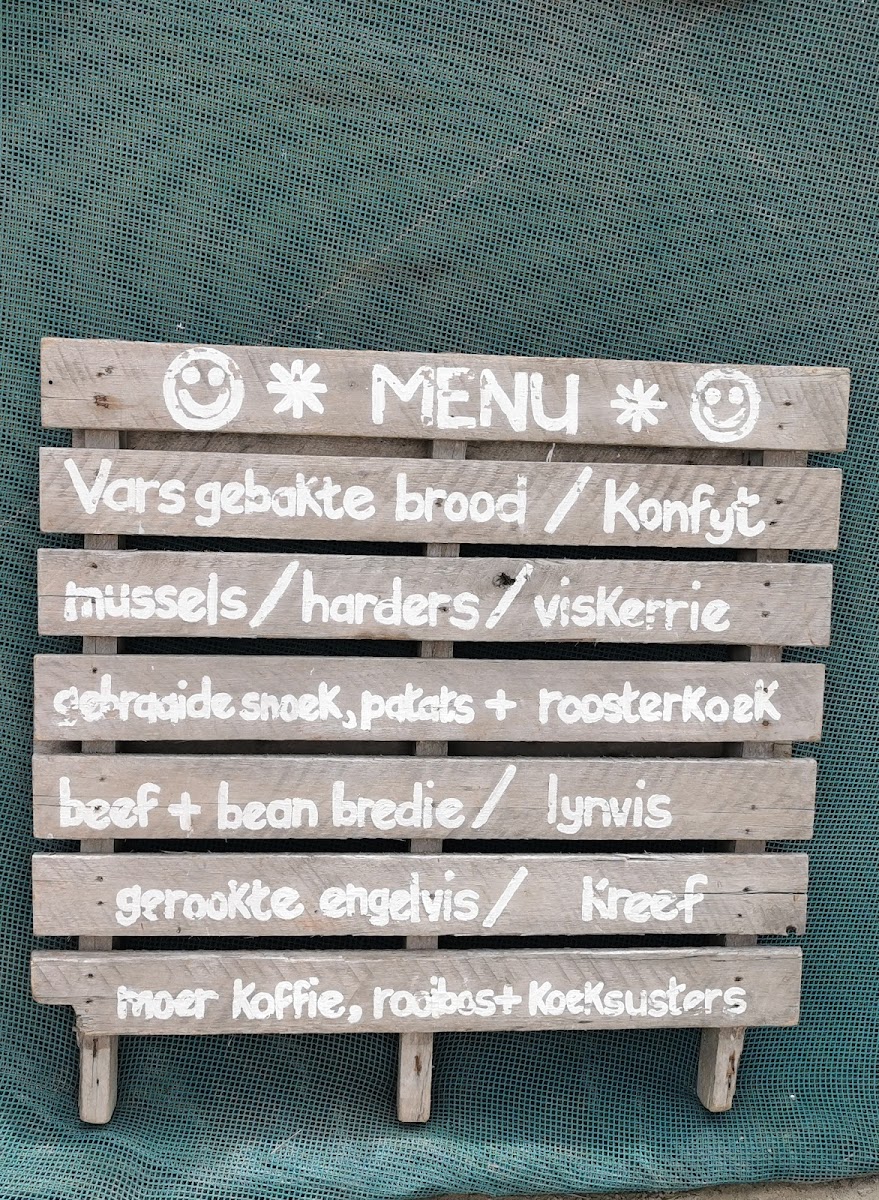 * MENU *
Vars gebakte brood / Konfyt
mussels / harders / viskerrie
gebraaide snoek, patats + roosterkoek
beef + bean bredie / lynvis
gerookte engelvis / Kreef
moer koffie, rooibos + koeksusters